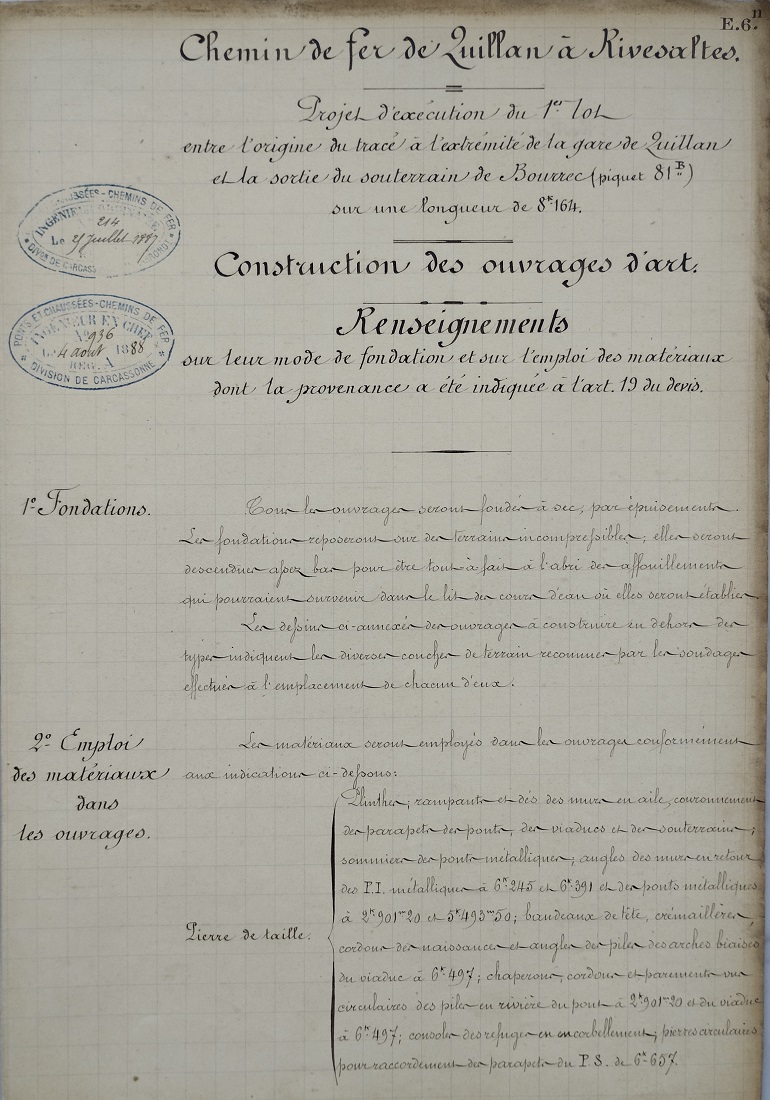 E.6.n
Chemin de fer de Quillan à Rivesaltes.
Projet d'exécution du 1er lot
entre l'origine du tracé à l'extrémité de la gare de Quillan
et la sortie du souterrain de Bourrec (piquet 81 B)
sur une longueur de 8k164.
CHEMINS DE FER
214
Le 25 Juillet 1887
DIVon DE CARCASS
Construction des ouvrages d'art.
PONTS ET CHAUSSÉES-CHEMINS DE FER
INGÉNIEUR EN CHEF
No 936
Le 4 août 1888
REG. A
DIVISION DE CARCASSONNE
Renseignements
sur leur mode de fondation et sur l'emploi des matériaux
dont la provenance a été indiquée à l'art. 19 du devis.
1o Fondations.
Tous les ouvrages seront fondés à sec, par épuisements.
Les fondations reposeront sur des terrains incompressibles; elles seront
descendues assez bas pour être tout à fait à l'abri des affouillements
qui pourraient survenir dans le lit des cours d'eau où elles seront établies.
Les dessins ci-annexés des ouvrages à construire en dehors des
types indiquent les diverses couches de terrain reconnues par les sondages
effectués à l'emplacement de chacun d'eux.
2o Emploi
des matériaux
dans
les ouvrages.
Les matériaux seront employés dans les ouvrages conformément
aux indications ci-dessous:
Pierre de taille.
Plinthes, rampants et dés des murs en aile, couronnement
des parapets des ponts, des viaducs et des souterrains;
sommiers des ponts métalliques; angles des murs en retour
des P.I. métalliques à 6k245 et 6k391 et des ponts métalliques
à 2k901m20 et 5k493m50; bandeaux de tête, crémaillères,
cordons des naissances et angles des piles des arches biaises
du viaduc à 6k497; chaperons, cordons et parements vus
circulaires des piles en rivière du pont à 2k901m20 et du viaduc
à 6k497; consoles des refuges en encorbellement; pierres circulaires
pour raccordement des parapets du P.S. de 6k657.